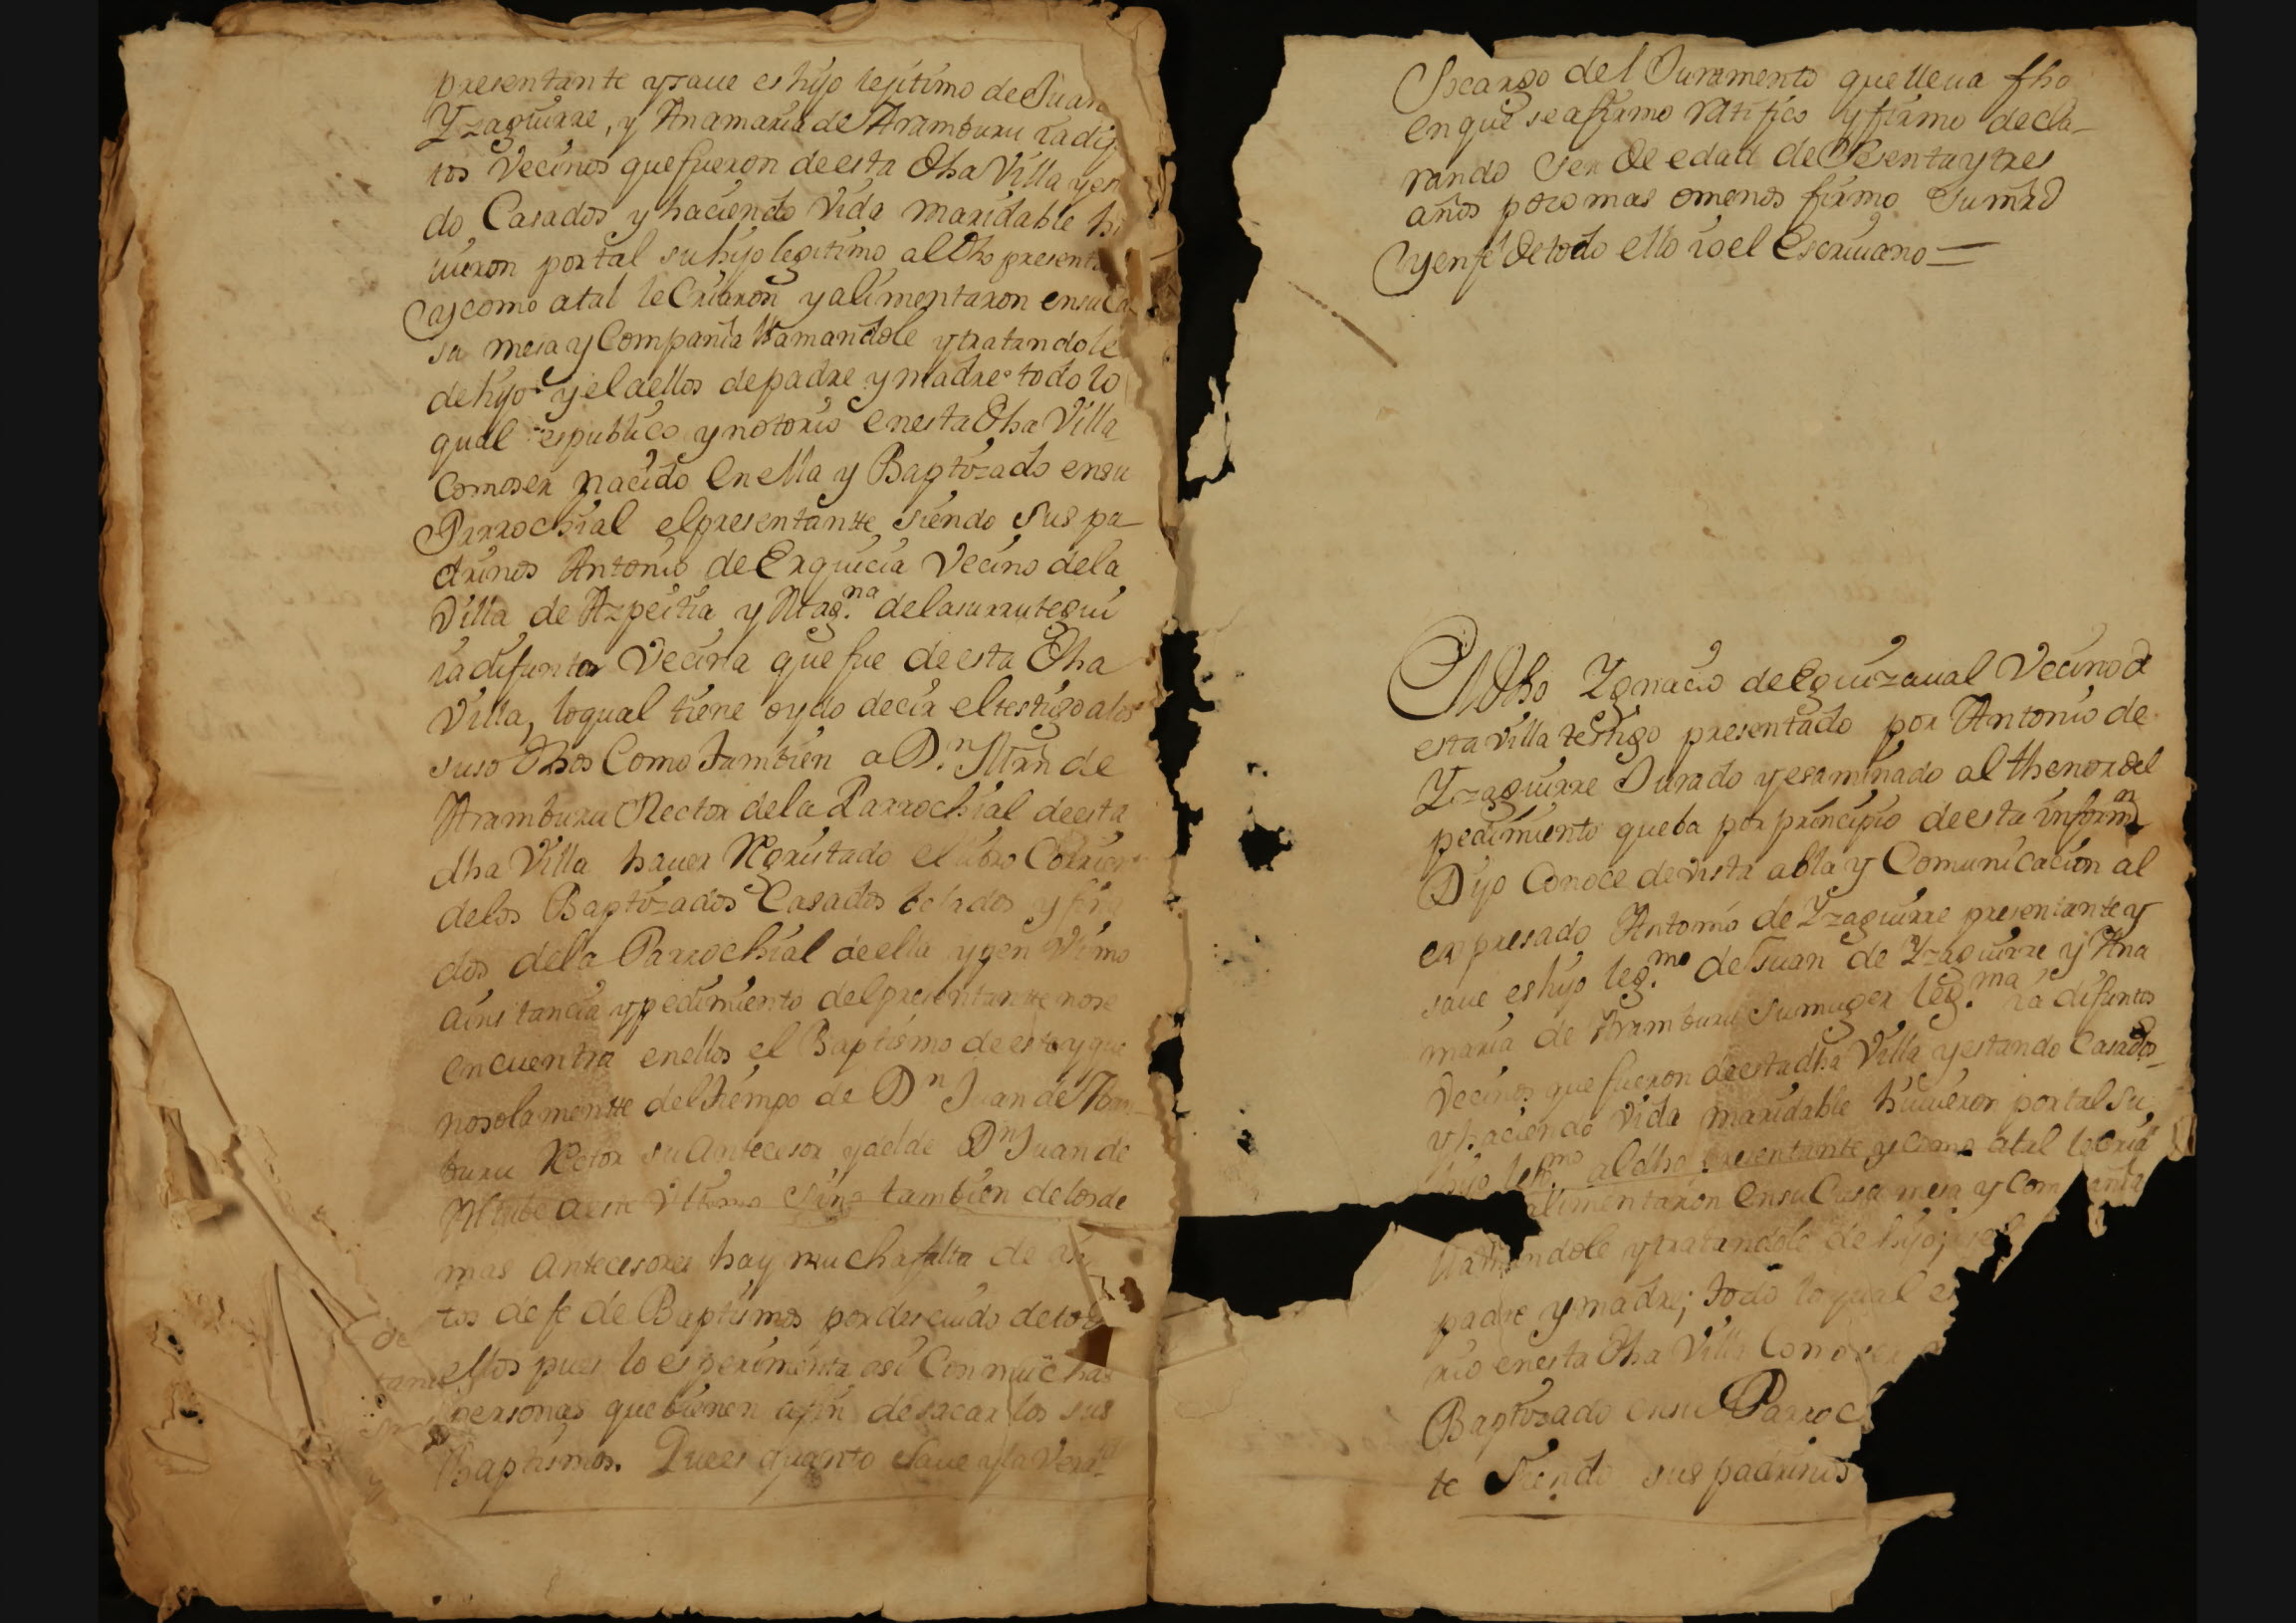 presentante ysaue es hijo lejitimo de Juan
Yzaguirre, y Anamaria de Aramburu ia dif
tos Vecinos que fueron de esta dha Villa y en
do Casados y haciendo Vida maridable hu
uieron portal suhijo legitimo al dho present
ajcomo atal le Criaron y alimentaron ensu Ca
su mesa y Compania llamandole ytratandole
de hijo yel aellos de padre y madre todo lo
qual es publico ynotorio enesta dha Villa
Comoser nacido en ella y Baptizado ensu
Parrochial elpresentantte siendo sus pa-
drinos Antonio de Erguicia Vecino dela
Villa de Azpeitia y Mag.na delasurrutegui
ia difunta Vecina que fue de esta dha
Villa, loqual tiene oydo decir eltestigo alos
suso dhos Como tambien a D.n Mrn de
Aramburu Rector dela Parrochial deesta
dha Villa hauer Rexistado el libro Corrien
delos Baptizados Casados belados y fin
dos dela Parrochial deella ygen
ainstancia ypedimiento delpresentantte nose
encuentra enellos el Baptismo de este yque
nosolamentte del tiempo de Dn Juan de Aram
buru Retor su antecesor ydelde Dn Juan de
Altube aeste Vltimo Sino tambien delosde
mas antecesores hay mucha falta de asi
tos de fe de Baptismos por descuido de to
ellos pues lo esperimenta asi Con muchas
personas quebienen afin desacar los sus
Baptismos. Quees quanto saue yla Verd
Socargo del Juramento quelleua fho
enque seafirmo ratifico yfirmo decla-
rando Ser de edad de Sesentaytres
años poco mas omenos firmo Sumrd
yenfe detodo ello io el Escriuano=
El dho Ygnacio de Eguizaual Vecino d
esta villa testigo presentado por Antonio de
Yzaguirre Jurado yesaminado al thenordel
pedimiento queba por principio deesta informn
Dijo Conoce devista abla y Comunicacion al
expresado Antonio de Yzaguirre presentante y
saue es hijo leg.mo de Juan de Yzaguirre y Ana
maria de Aramburu sumuger leg.ma ia difuntos
Vecinos que fueron deestadha Villa yestando Casados
y haciendo Vida maridable huuieron portal su
hijo lex.mo aldho presentante ycomo atal lecria
alimentaron ensu Casa mesa y Compania
llamandole ytratandole de hijo; yel
padre ymadre; todo loqual es
rio enesta dha Villa Comoser
Baptizado ensu Parroc
te siendo sus padrinos